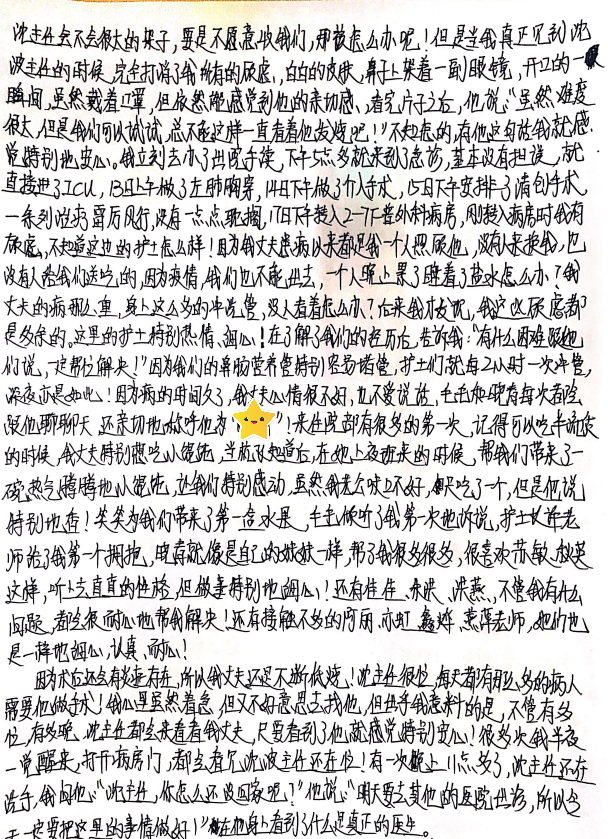 沈主任会不会很大的架子，要是不愿意收我们，那该怎么办呢！但是当我真正见到沈
波主任的时候，完全打消了我所有的顾虑，白白的皮肤，鼻子上架着一副眼镜，开口的一
瞬间，虽然戴着口罩，但依然能感觉到他的亲切感，看完片子之后，他说："虽然难度
很大，但是我们可以试试，总不能这样一直看着他发烧吧！"不知怎的，有他这句话我就感
觉特别地安心。我立刻去办了出院手续，下午5点多就来到了急诊，基本没有担误，就
直接进了ICU，13日上午做了左肺胸穿，14日下午做了介入手术，15日下午安排了清创手术，
一系列的雷厉风行，没有一点点耽搁，17日下午转入2-7F普外科病房，刚转入病房时我有
顾虑，不知道这边的护士怎么样！因为我丈夫患病以来都是我一个人照顾他，没有人来换我，也
没有人给我们送吃的，因为疫情，我们也不能出去，一个人晚上累了睡着了盐水怎么办？我
丈夫的病那么重，身上这么多的冲洗管，没人看着怎么办？后来我才发现，我这些顾虑都
是多余的。这里的护士特别热情、细心！在了解了我们的经历后，告诉我："有什么困难跟她
们说，一定帮忙解决！"因为我们的鼻肠营养管特别容易堵管，护士们就每2小时一次冲管，
深夜亦是如此！因为病的时间久了，我丈夫心情很不好，也不爱说话，毛毛和晓有每次都会
跟他聊聊天，还亲切地称呼他为" "！来住院部有很多的第一次，记得可以吃半流质
的时候，我丈夫特别想吃小馄饨，当 知道后，在她上夜班来的时候，帮我们带来了一
碗热气腾腾的小馄饨，让我们特别感动，虽然我老公味口不好，只吃了一个，但是他说
特别地香！笑笑为我们带来了第一盒水果，毛毛倾听了我第一次地诉说，护士长 老
师给了我第一个拥抱，她真就像是自己的妹妹一样，帮了我很多很多，很喜欢苏敏、
这样，听上去直直的性格，但做事特别地细心！还有佳佳、 、 燕，不管我有什么
问题，都会很耐心地帮我解决！还有接触不多的阿丽、亦虹、鑫烨、燕萍老师，她们也
是一样地细心、认真、耐心！
因为术后还会有炎症存在，所以我丈夫还是不断低烧！沈主任很忙，每天都有那么多的病人
需要他做手术！我心里虽然着急，但又不好意思去找他，但出乎我意料的是，不管有多
忙，有多晚，沈主任都会来看看我丈夫，只要看到了他就感觉特别安心！很多次我半夜
一觉醒来，打开病房门，都会看见沈波主任还在忙！有一次晚上11点多了，沈主任还在
洗手，我问他："沈主任，你怎么还没回家呢？"他说："明天要去其他的医院出诊，所以今
天一定要把这里的事情做好！"我在他身上看到了什么是真正的医生。